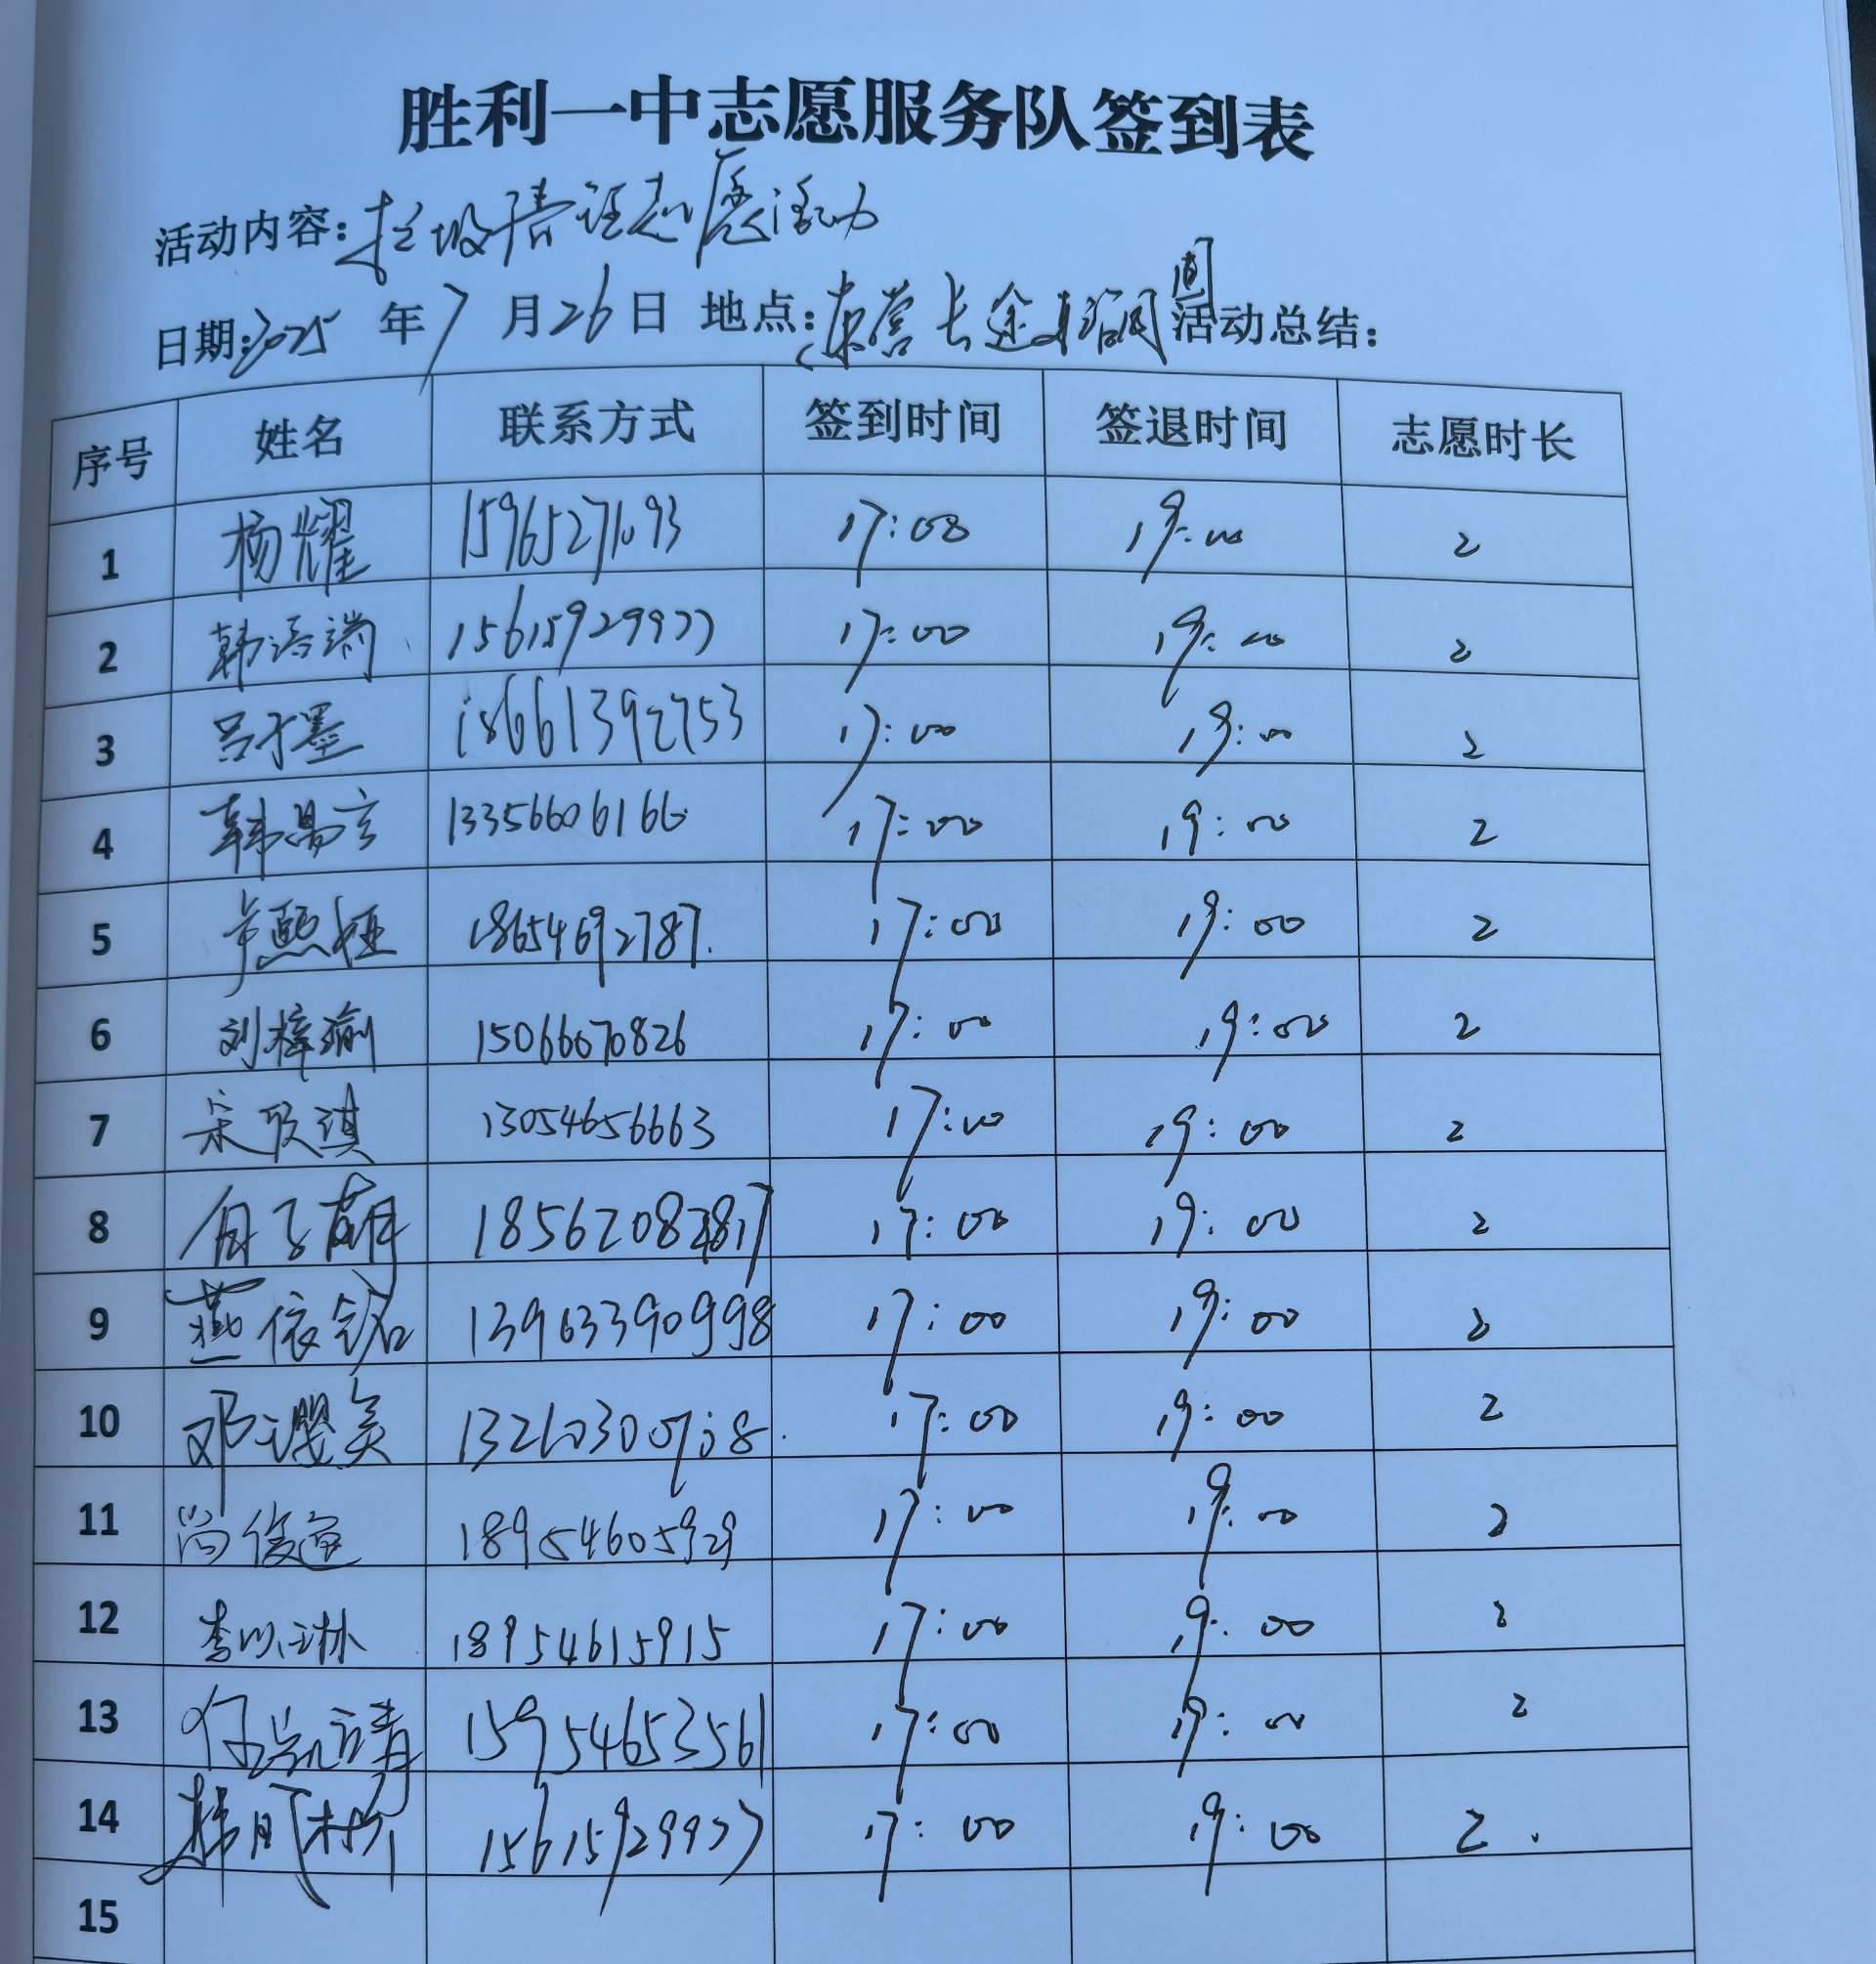 胜利一中志愿服务队签到表
活动内容：垃圾清理志愿活动
日期：2025年7月26日 地点：东营长途车站周 活动总结：
序号 姓名 联系方式 签到时间 签退时间 志愿时长
1 杨耀 15965271093 17:08 19:00 2
2 韩语端 15615929977 17:00 19:00 2
3 吕才墨 18661392753 17:00 19:00 2
4 韩昌言 13356606166 17:00 19:00 2
5 熙 18654692787. 17:00 19:00 2
6 刘梓瑜 15066670826 17:00 19:00 2
7 宋欣琪 13054656663 17:00 19:00 2
8 子萌 17:00 19:00 2
9 燕依铭 13963390998 17:00 19:00 2
10 邓美 17:00 19:00 2
11 尚俊 18954605929 17:00 19:00 2
12 李以琳 18954615915 17:00 19:00 2
13 任凯靖 15954653561 17:00 19:00 2
14 韩 15615929977 17:00 19:00 2.
15